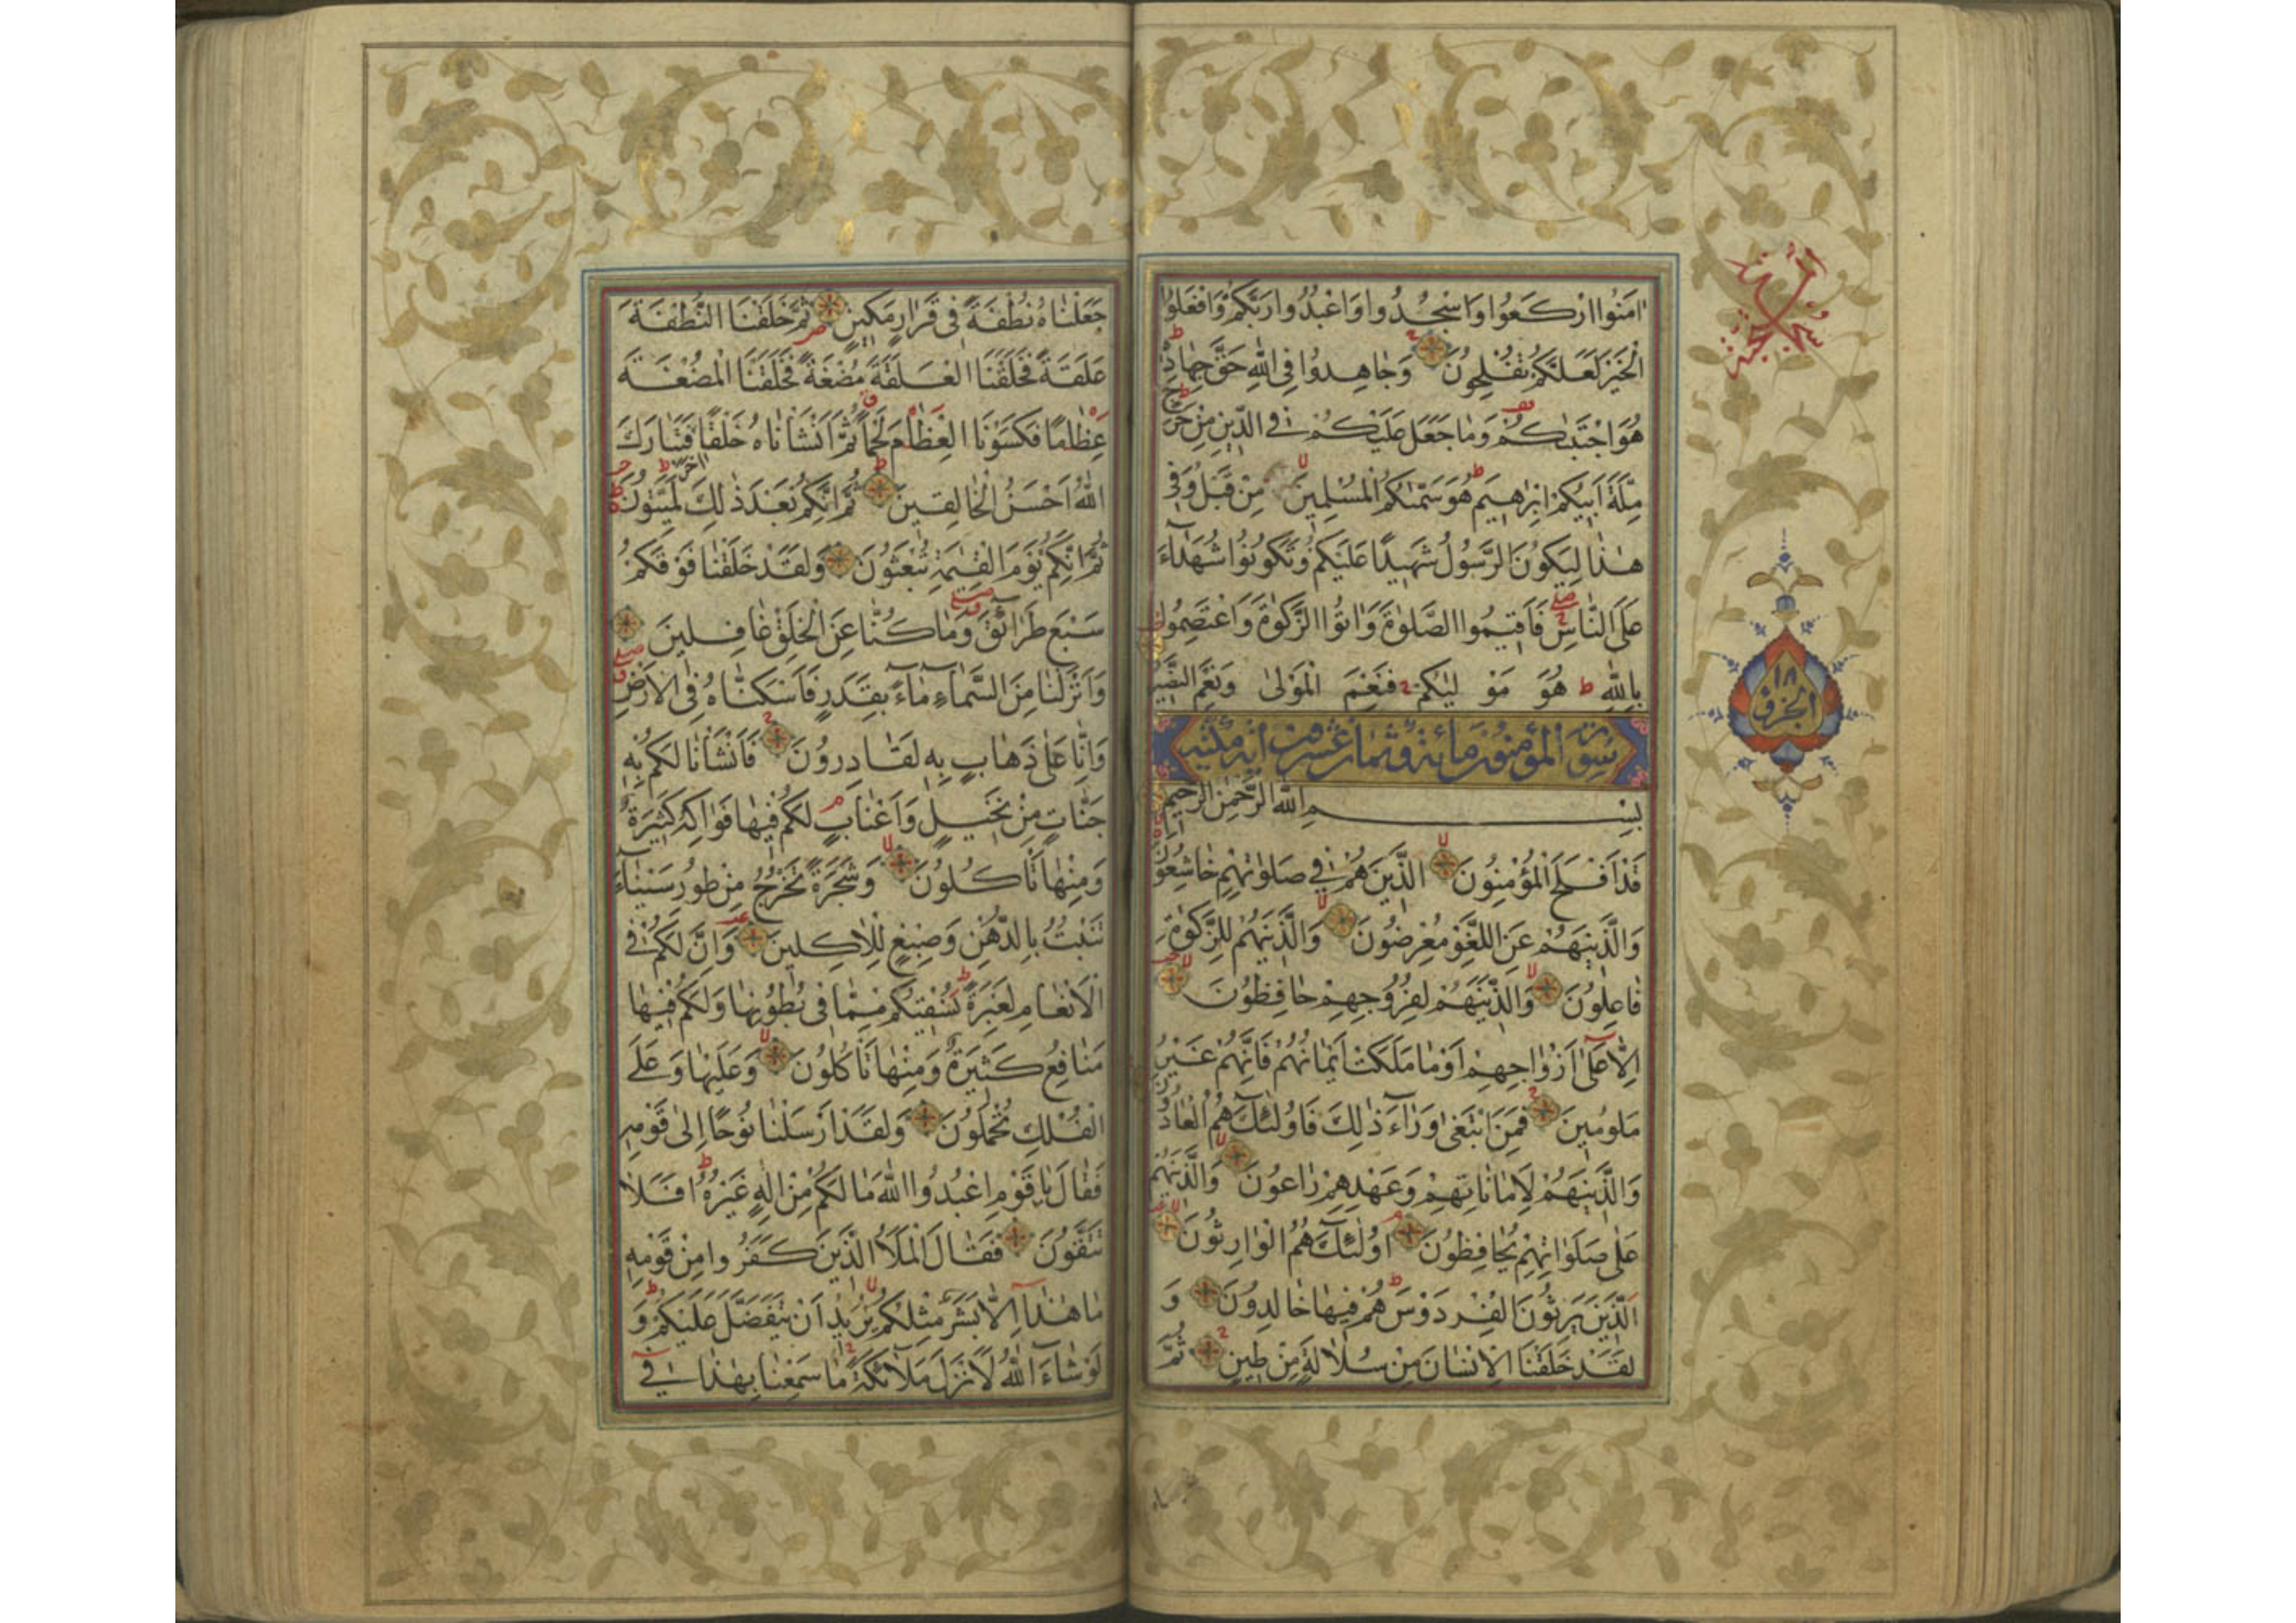 اٰمَنُوا ارْكَعُوا وَاسْجُدُوا وَاعْبُدُوا رَبَّكُمْ وَافْعَلُوا
الْخَيْرَ لَعَلَّكُمْ تُفْلِحُونَ وَجَاهِدُوا فِي اللّٰهِ حَقَّ جِهَادِهِ
هُوَ اجْتَبٰيكُمْ وَمَا جَعَلَ عَلَيْكُمْ فِي الدِّينِ مِنْ حَرَجٍ
مِلَّةَ اَبِيكُمْ اِبْرٰهِيمَ هُوَ سَمّٰيكُمُ الْمُسْلِمِينَ مِنْ قَبْلُ وَفِي
هٰذَا لِيَكُونَ الرَّسُولُ شَهِيدًا عَلَيْكُمْ وَتَكُونُوا شُهَدَاءَ
عَلَى النَّاسِ فَاَقِيمُوا الصَّلٰوةَ وَاٰتُوا الزَّكٰوةَ وَاعْتَصِمُوا
بِاللّٰهِ هُوَ مَوْلٰيكُمْ فَنِعْمَ الْمَوْلٰى وَنِعْمَ النَّصِيرُ
سورة المؤمنون مائة وثمان عشرة اية مكية
بِسْمِ اللّٰهِ الرَّحْمٰنِ الرَّحِيمِ
قَدْ اَفْلَحَ الْمُؤْمِنُونَ الَّذِينَ هُمْ فِي صَلٰوتِهِمْ خَاشِعُونَ
وَالَّذِينَ هُمْ عَنِ اللَّغْوِ مُعْرِضُونَ وَالَّذِينَ هُمْ لِلزَّكٰوةِ
فَاعِلُونَ وَالَّذِينَ هُمْ لِفُرُوجِهِمْ حَافِظُونَ
اِلَّا عَلٰى اَزْوَاجِهِمْ اَوْ مَا مَلَكَتْ اَيْمَانُهُمْ فَاِنَّهُمْ غَيْرُ
مَلُومِينَ فَمَنِ ابْتَغٰى وَرَاءَ ذٰلِكَ فَاُولٰئِكَ هُمُ الْعَادُونَ
وَالَّذِينَ هُمْ لِاَمَانَاتِهِمْ وَعَهْدِهِمْ رَاعُونَ وَالَّذِينَ هُمْ
عَلٰى صَلَوَاتِهِمْ يُحَافِظُونَ اُولٰئِكَ هُمُ الْوَارِثُونَ
الَّذِينَ يَرِثُونَ الْفِرْدَوْسَ هُمْ فِيهَا خَالِدُونَ وَ
لَقَدْ خَلَقْنَا الْاِنْسَانَ مِنْ سُلَالَةٍ مِنْ طِينٍ ثُمَّ
١٨
الجزؤ
جَعَلْنَاهُ نُطْفَةً فِي قَرَارٍ مَكِينٍ ثُمَّ خَلَقْنَا النُّطْفَةَ
عَلَقَةً فَخَلَقْنَا الْعَلَقَةَ مُضْغَةً فَخَلَقْنَا الْمُضْغَةَ
عِظَامًا فَكَسَوْنَا الْعِظَامَ لَحْمًا ثُمَّ اَنْشَاْنَاهُ خَلْقًا اٰخَرَ فَتَبَارَكَ
اللّٰهُ اَحْسَنُ الْخَالِقِينَ ثُمَّ اِنَّكُمْ بَعْدَ ذٰلِكَ لَمَيِّتُونَ
ثُمَّ اِنَّكُمْ يَوْمَ الْقِيٰمَةِ تُبْعَثُونَ وَلَقَدْ خَلَقْنَا فَوْقَكُمْ
سَبْعَ طَرَائِقَ وَمَا كُنَّا عَنِ الْخَلْقِ غَافِلِينَ
وَاَنْزَلْنَا مِنَ السَّمَاءِ مَاءً بِقَدَرٍ فَاَسْكَنَّاهُ فِي الْاَرْضِ
وَاِنَّا عَلٰى ذَهَابٍ بِهِ لَقَادِرُونَ فَاَنْشَاْنَا لَكُمْ بِهِ
جَنَّاتٍ مِنْ نَخِيلٍ وَاَعْنَابٍ لَكُمْ فِيهَا فَوَاكِهُ كَثِيرَةٌ
وَمِنْهَا تَاْكُلُونَ وَشَجَرَةً تَخْرُجُ مِنْ طُورِ سَيْنَاءَ
تَنْبُتُ بِالدُّهْنِ وَصِبْغٍ لِلْاٰكِلِينَ وَاِنَّ لَكُمْ فِي
الْاَنْعَامِ لَعِبْرَةً نُسْقِيكُمْ مِمَّا فِي بُطُونِهَا وَلَكُمْ فِيهَا
مَنَافِعُ كَثِيرَةٌ وَمِنْهَا تَاْكُلُونَ وَعَلَيْهَا وَعَلَى
الْفُلْكِ تُحْمَلُونَ وَلَقَدْ اَرْسَلْنَا نُوحًا اِلٰى قَوْمِهِ
فَقَالَ يَا قَوْمِ اعْبُدُوا اللّٰهَ مَا لَكُمْ مِنْ اِلٰهٍ غَيْرُهُ اَفَلَا
تَتَّقُونَ فَقَالَ الْمَلَاُ الَّذِينَ كَفَرُوا مِنْ قَوْمِهِ
مَا هٰذَا اِلَّا بَشَرٌ مِثْلُكُمْ يُرِيدُ اَنْ يَتَفَضَّلَ عَلَيْكُمْ وَ
لَوْ شَاءَ اللّٰهُ لَاَنْزَلَ مَلَائِكَةً مَا سَمِعْنَا بِهٰذَا فِي